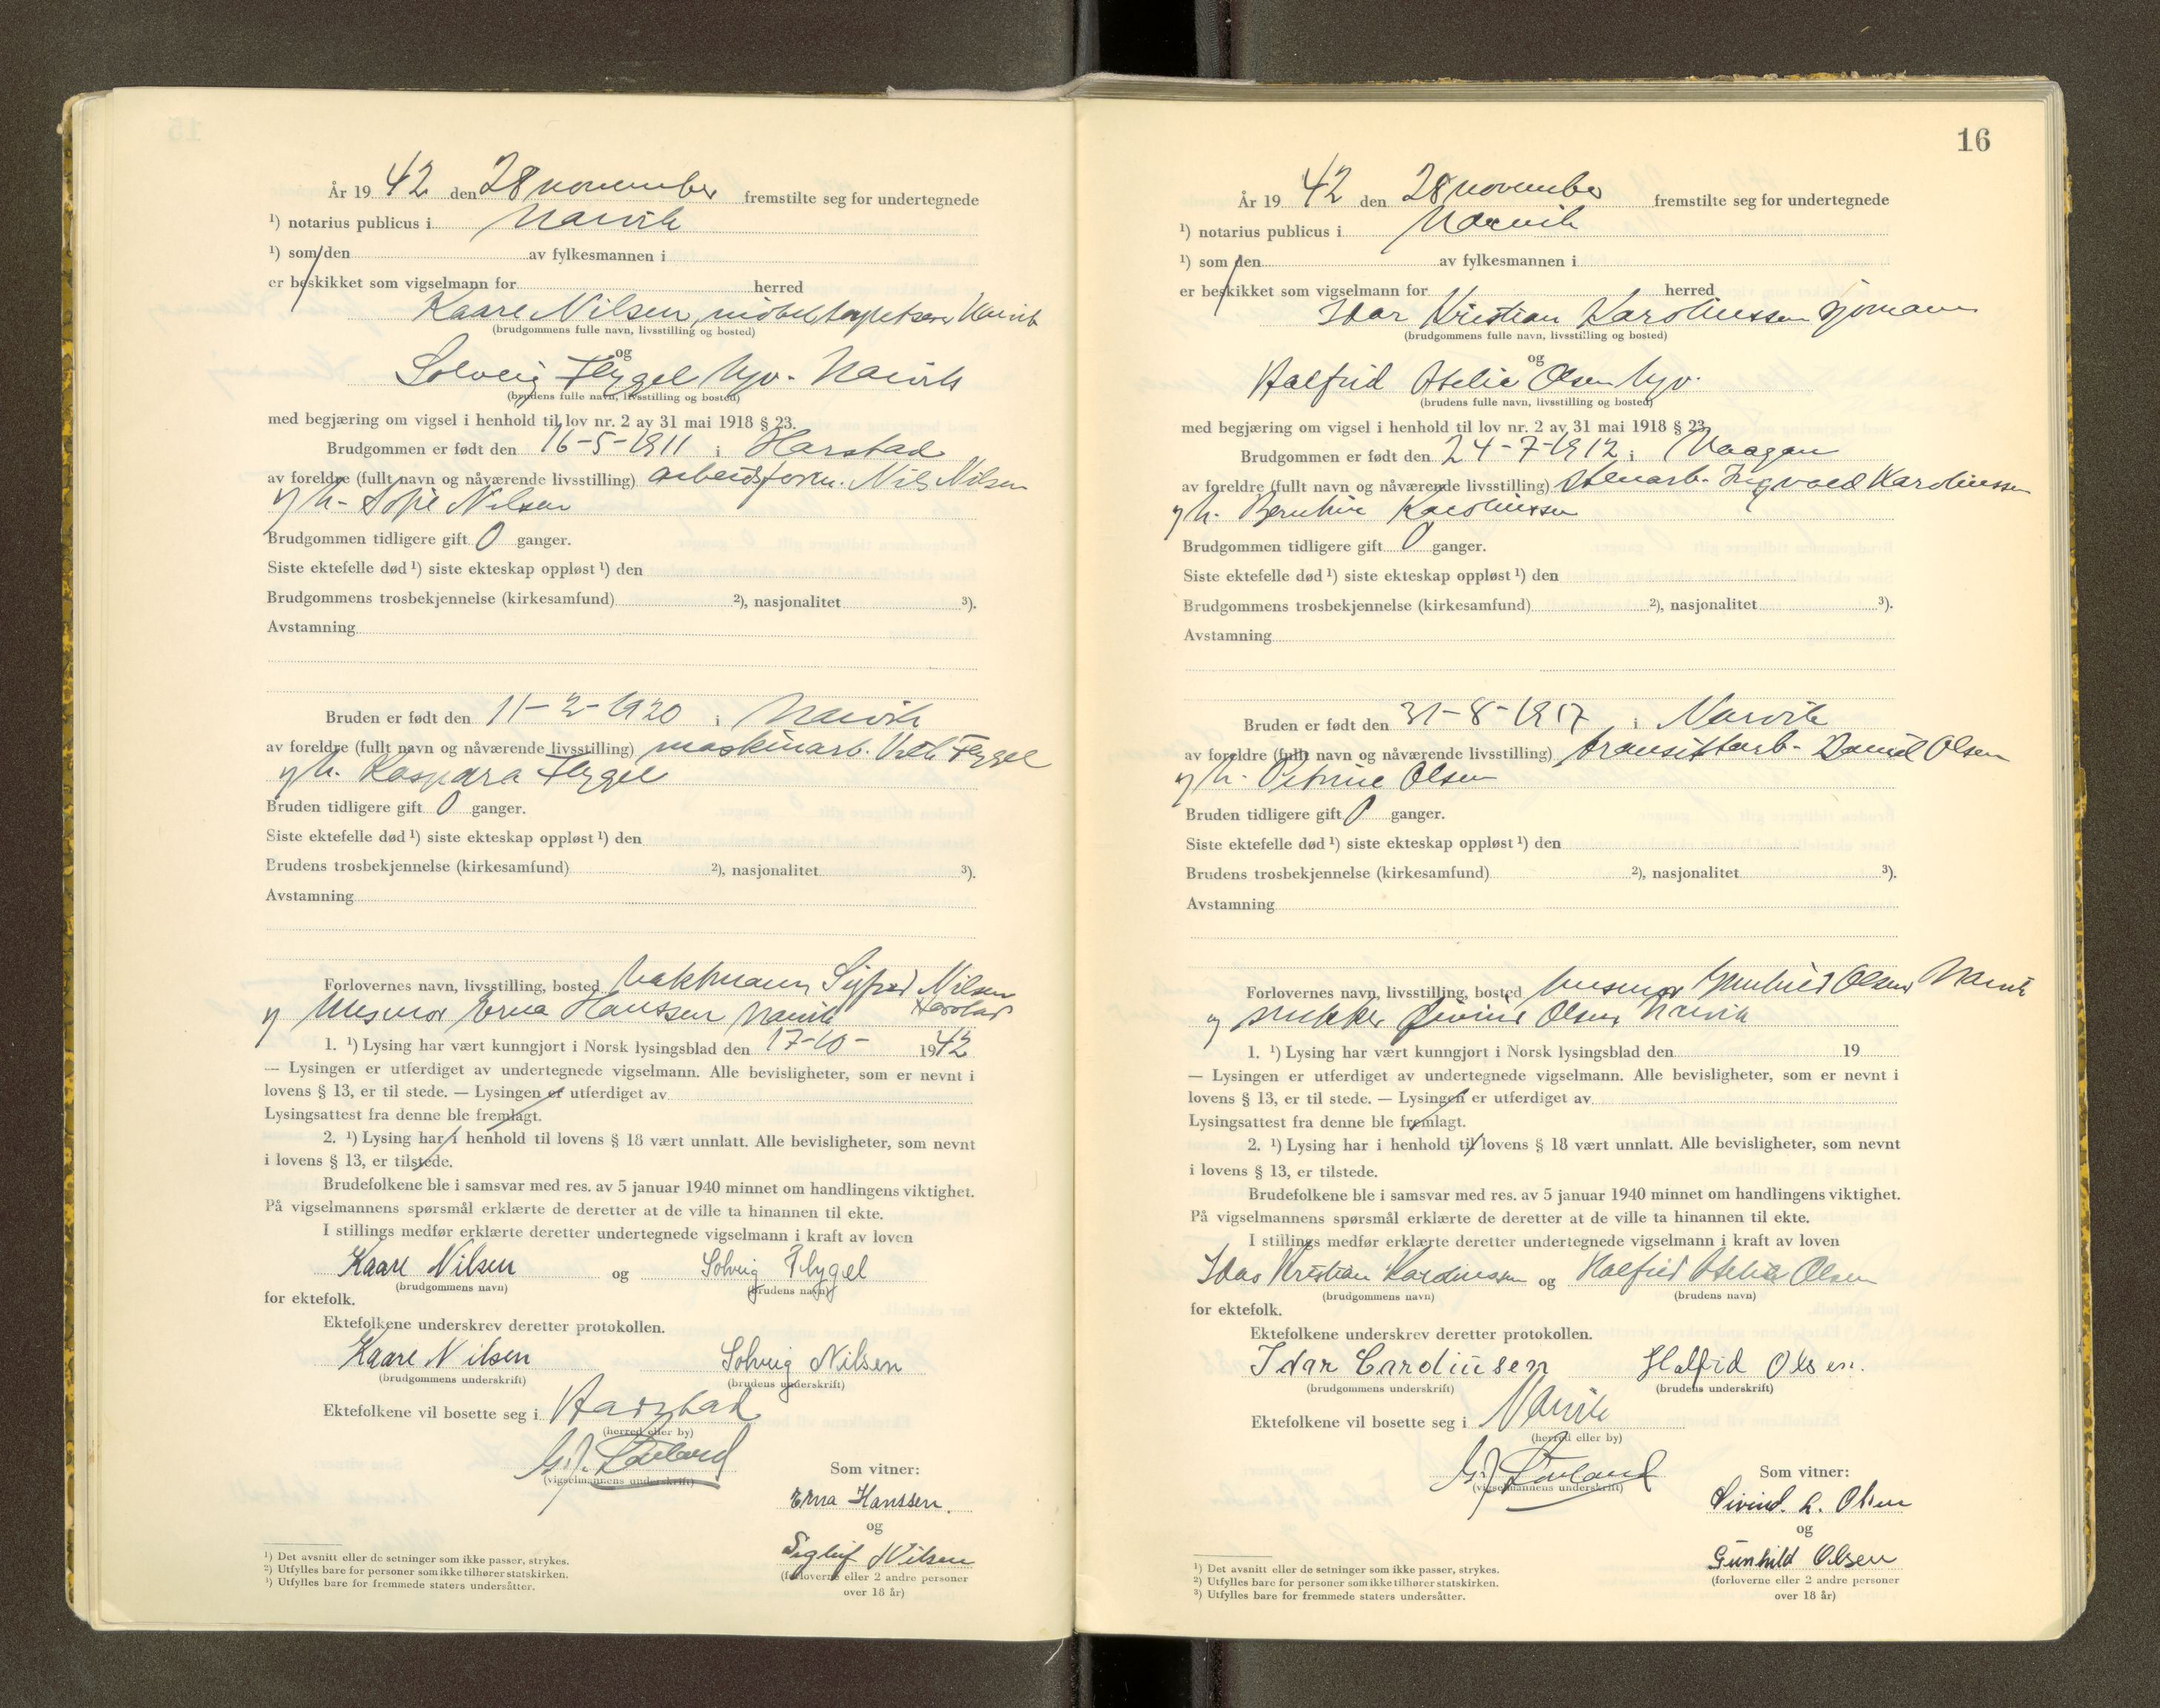 År 19 42 den 28 november fremstilte seg for undertegnede
¹) notarius publicus i Narvik
¹) som den av fylkesmannen i
er beskikket som vigselmann for herred
Kaare Nilsen, møbeltapetserer Narvik
(brudgommens fulle navn, livsstilling og bosted)
og
Solveig Flygel hjv. Narvik
(brudens fulle navn, livsstilling og bosted)
med begjæring om vigsel i henhold til lov nr. 2 av 31 mai 1918 § 23.
Brudgommen er født den 16-5-1911 i Harstad
av foreldre (fullt navn og nåværende livsstilling) arbeidsform. Nils Nilsen
og h. Sofie Nilsen
Brudgommen tidligere gift 0 ganger.
Siste ektefelle død ¹) siste ekteskap oppløst ¹) den
Brudgommens trosbekjennelse (kirkesamfund) ²), nasjonalitet ³).
Avstamning
Bruden er født den 11-2-1920 i Narvik
av foreldre (fullt navn og nåværende livsstilling) maskinarb. Flygel
og h. Kaspara Flygel
Bruden tidligere gift 0 ganger.
Siste ektefelle død ¹) siste ekteskap oppløst ¹) den
Brudens trosbekjennelse (kirkesamfund) ²), nasjonalitet ³).
Avstamning
Forlovernes navn, livsstilling, bosted Vaktmann Nilsen
Harstad
og Husmor Erna Hanssen Narvik
1. ¹) Lysing har vært kunngjort i Norsk lysingsblad den 17-10- 1942
— Lysingen er utferdiget av undertegnede vigselmann. Alle bevisligheter, som er nevnt i
lovens § 13, er til stede. — Lysingen er utferdiget av
Lysingsattest fra denne ble fremlagt.
2. ¹) Lysing har i henhold til lovens § 18 vært unnlatt. Alle bevisligheter, som nevnt
i lovens § 13, er tilstede.
Brudefolkene ble i samsvar med res. av 5 januar 1940 minnet om handlingens viktighet.
På vigselmannens spørsmål erklærte de deretter at de ville ta hinannen til ekte.
I stillings medfør erklærte deretter undertegnede vigselmann i kraft av loven
Kaare Nilsen og Solveig Flygel
(brudgommens navn) (brudens navn)
for ektefolk.
Ektefolkene underskrev deretter protokollen.
Kaare Nilsen Solveig Nilsen
(brudgommens underskrift) (brudens underskrift)
Ektefolkene vil bosette seg i Harstad
(herred eller by)
(vigselmannens underskrift)
Som vitner:
Erna Hanssen.
og
Sigluf Nilsen
(forloverne eller 2 andre personer
over 18 år)
¹) Det avsnitt eller de setninger som ikke passer, strykes.
²) Utfylles bare for personer som ikke tilhører statskirken.
³) Utfylles bare for fremmede staters undersåtter.
16
År 19 42 den 28 november fremstilte seg for undertegnede
¹) notarius publicus i Narvik
¹) som den av fylkesmannen i
er beskikket som vigselmann for herred
Idar Kristian Karolinssen sjømann
(brudgommens fulle navn, livsstilling og bosted)
og
Halfrid Otelie Olsen hjv.
(brudens fulle navn, livsstilling og bosted)
med begjæring om vigsel i henhold til lov nr. 2 av 31 mai 1918 § 23.
Brudgommen er født den 24-7-1912 i Vaagan
av foreldre (fullt navn og nåværende livsstilling) Stenarb. Ingvald Karolinssen
og h. Berntine Karolinssen
Brudgommen tidligere gift 0 ganger.
Siste ektefelle død ¹) siste ekteskap oppløst ¹) den
Brudgommens trosbekjennelse (kirkesamfund) ²), nasjonalitet ³).
Avstamning
Bruden er født den 31-8-1917 i Narvik
av foreldre (fullt navn og nåværende livsstilling) transittarb. Daniel Olsen
og h. Petrine Olsen
Bruden tidligere gift 0 ganger.
Siste ektefelle død ¹) siste ekteskap oppløst ¹) den
Brudens trosbekjennelse (kirkesamfund) ²), nasjonalitet ³).
Avstamning
Forlovernes navn, livsstilling, bosted husmor Gunhild Olsen Narvik
og snekker Eivind Olsen Narvik
1. ¹) Lysing har vært kunngjort i Norsk lysingsblad den 19
— Lysingen er utferdiget av undertegnede vigselmann. Alle bevisligheter, som er nevnt i
lovens § 13, er til stede. — Lysingen er utferdiget av
Lysingsattest fra denne ble fremlagt.
2. ¹) Lysing har i henhold til lovens § 18 vært unnlatt. Alle bevisligheter, som nevnt
i lovens § 13, er tilstede.
Brudefolkene ble i samsvar med res. av 5 januar 1940 minnet om handlingens viktighet.
På vigselmannens spørsmål erklærte de deretter at de ville ta hinannen til ekte.
I stillings medfør erklærte deretter undertegnede vigselmann i kraft av loven
Idar Kristian Karolinssen og Halfrid Otelie Olsen
(brudgommens navn) (brudens navn)
for ektefolk.
Ektefolkene underskrev deretter protokollen.
Idar Caroliusen Halfid Olsen.
(brudgommens underskrift) (brudens underskrift)
Ektefolkene vil bosette seg i Narvik
(herred eller by)
(vigselmannens underskrift)
Som vitner:
Eivind. L. Olsen
og
Gunhild Olsen
(forloverne eller 2 andre personer
over 18 år)
¹) Det avsnitt eller de setninger som ikke passer, strykes.
²) Utfylles bare for personer som ikke tilhører statskirken.
³) Utfylles bare for fremmede staters undersåtter.